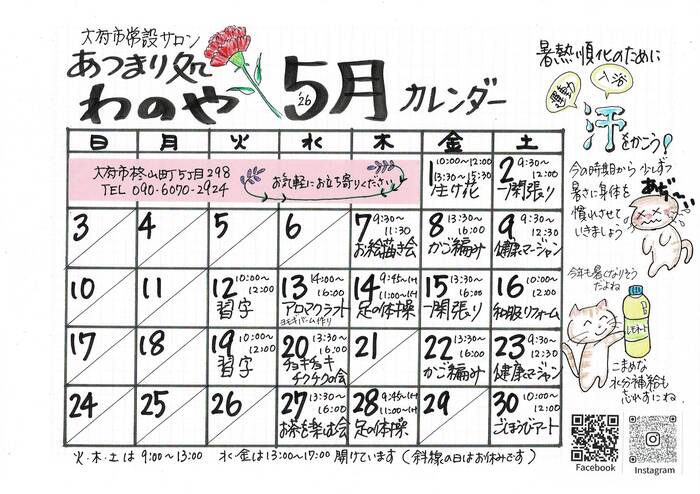 大府市常設サロン
あつまり処
わのや
'26
5月
カレンダー
日 月 火 水 木 金 土
大府市柊山町5丁目298
TEL 090-6070-2924
お気軽にお立ち寄りください
1 10:00~12:00
13:30~15:30
生け花
2 9:30~12:00
一閑張り
3 4 5 6
7 9:30~11:30
お絵描き会
8 13:30~16:00
かご編み
9 9:30~12:00
健康マージャン
10 11
12 10:00~12:00
習字
13 14:00~16:00
アロマクラフト
ヨモギバーム作り
14 9:45~(H)
11:00~(H)
足の体操
15 13:30~16:00
一閑張り
16 10:00~12:00
和服リフォーム
17 18
19 10:00~12:00
習字
20 13:30~16:00
チョキチョキ
チクチクの会
21
22 13:30~16:00
かご編み
23 9:30~12:30
健康マージャン
24 25 26
27 13:30~16:00
お茶を楽しむ会
28 9:45~(H)
11:00~(H)
足の体操
29
30 10:00~12:00
ごほうびアート
火・木・土は 9:00~13:00 水・金は13:00~17:00 開けています(斜線の日はお休みです)
暑熱順化のために
運動
入浴
汗をかこう!
今の時期から少しずつ
暑さに身体を
慣れさせて
いきましょう
あぢ〜
今年も暑くなりそう
だよね
レモネード
こまめな
水分補給も
忘れずにね
Facebook
Instagram